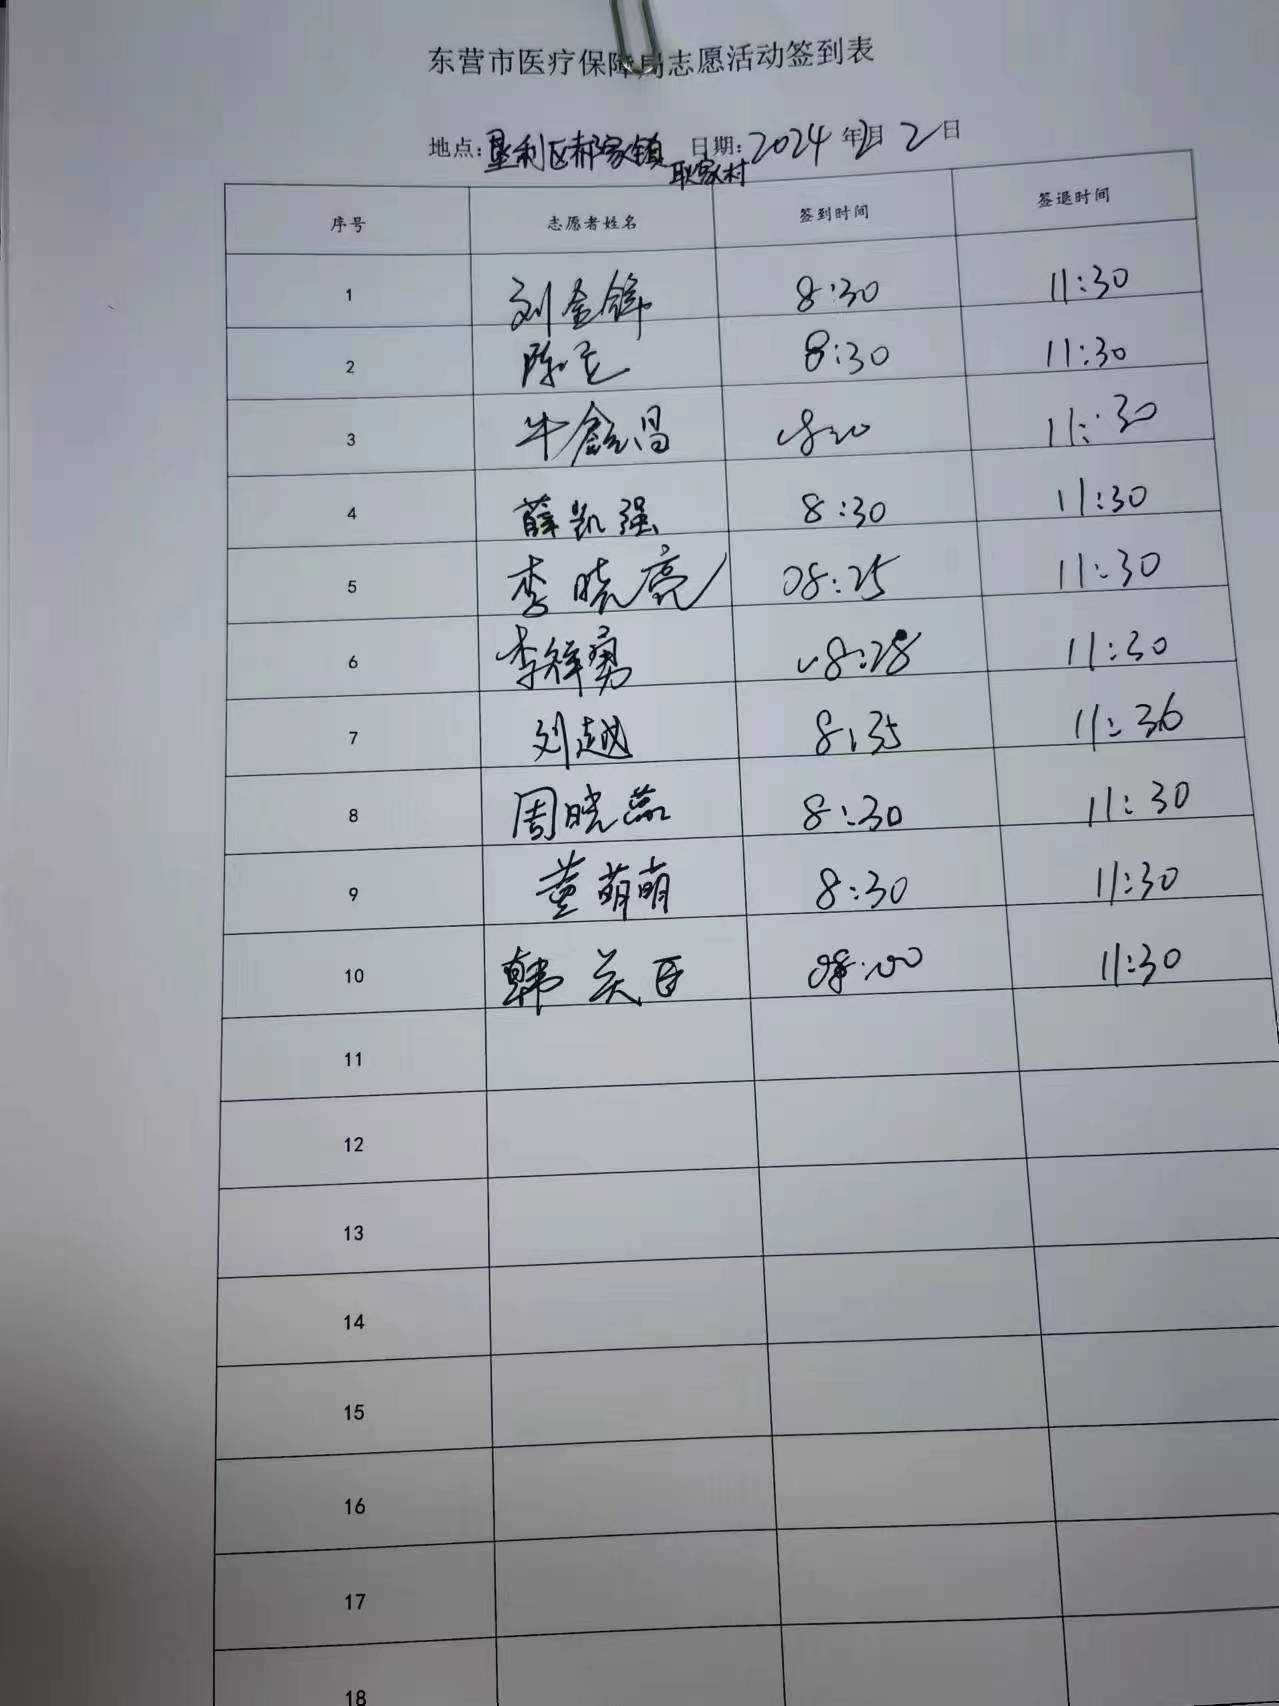 东营市医疗保障局志愿活动签到表
地点:垦利区郝家镇 日期:2024年2月2日
耿家村
序号 志愿者姓名 签到时间 签退时间
1 刘金锋 8:30 11:30
2 陈 8:30 11:30
3 牛鑫昌 11:30
4 薛凯强 8:30 11:30
5 李晓亮 08:25 11:30
6 李祥勇 08:28 11:30
7 刘越 8:35 11:36
8 周晓蕊 8:30 11:30
9 董萌萌 8:30 11:30
10 韩 08:00 11:30
11
12
13
14
15
16
17
18